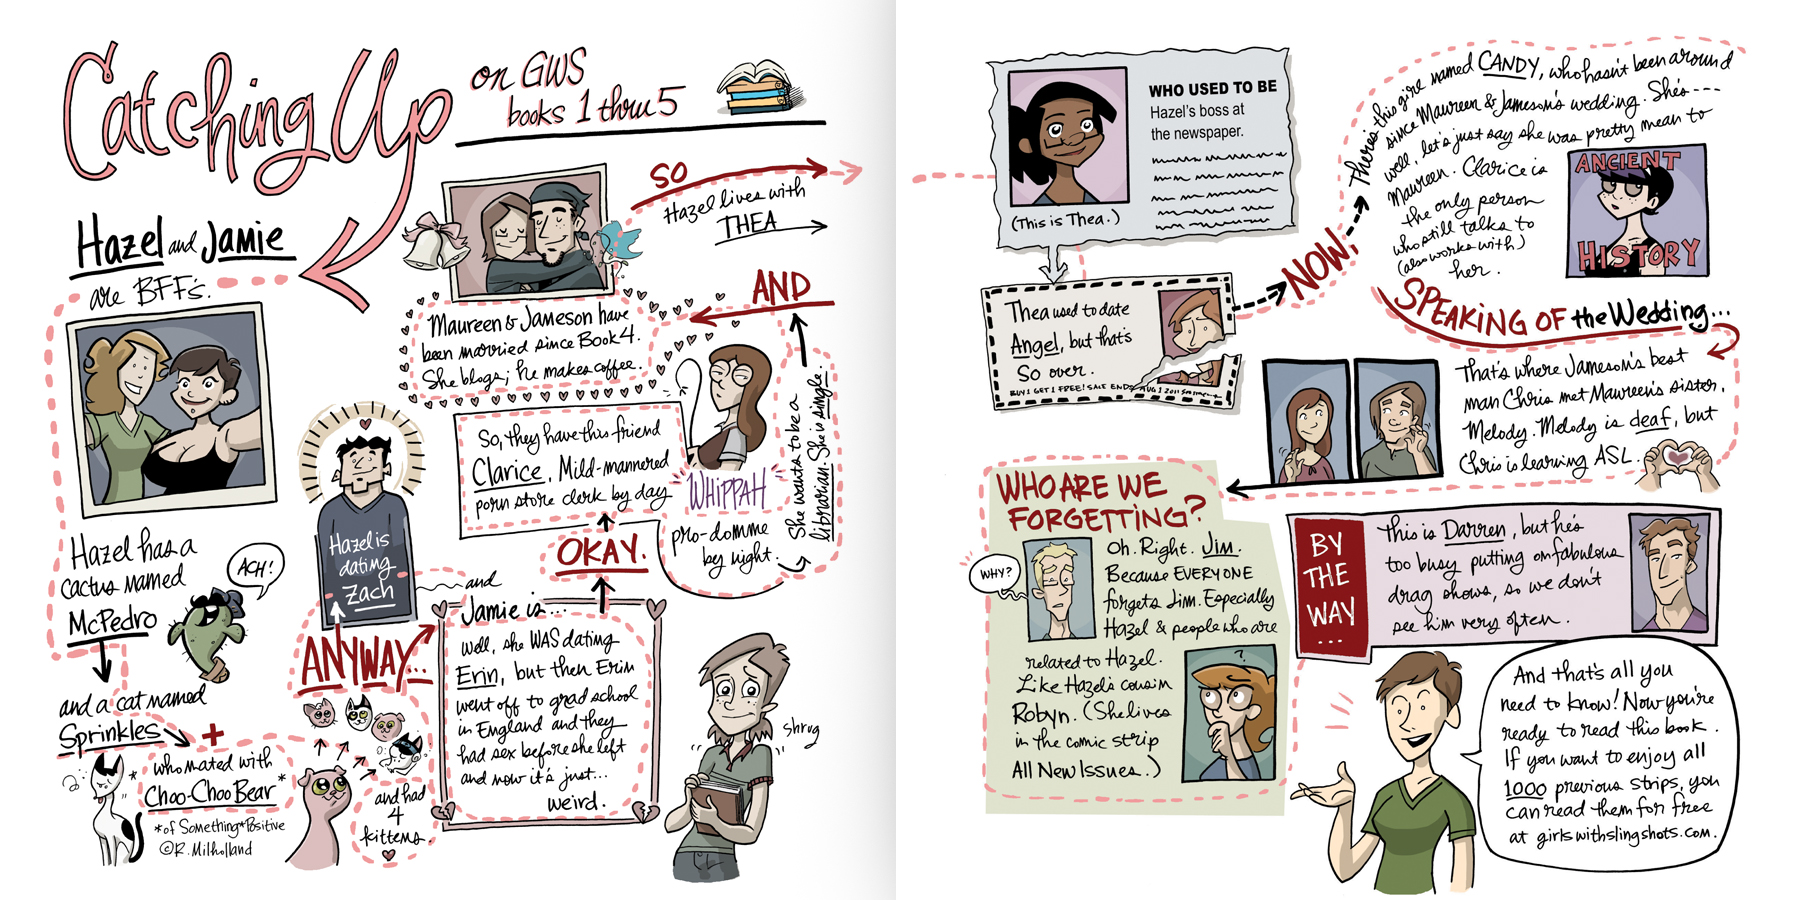 Catching Up
on GWS
books 1 thru 5
Hazel and Jamie
are BFF's.
Hazel has a
cactus named
McPedro
ACH!
and a cat named
Sprinkles
+
who mated with
Choo-Choo Bear*
*of Something*Positive
©R. Milholland
and had
4
kittens.
ANYWAY...
Hazel is
dating
Zach
and
Jamie is...
well, she WAS dating
Erin, but then Erin
went off to grad school
in England and they
had sex before she left
and now it's just...
weird.
shrug
OKAY.
So, they have this friend
Clarice. Mild-mannered
porn store clerk by day
WHIPPAH
pro-domme
by night.
She wants to be a
librarian. She is single.
AND
Maureen & Jameson have
been married since Book 4.
She blogs; he makes coffee.
SO
Hazel lives with
THEA
WHO USED TO BE
Hazel's boss at
the newspaper.
(This is Thea.)
Thea used to date
Angel, but that's
So over.
BUY 1 GET 1 FREE! SALE ENDS AUG 1 2011
NOW,
There's this girl named CANDY, who hasn't been around
since Maureen & Jameson's wedding. She's----
well, let's just say she was pretty mean to
Maureen. Clarice is
the only person
who still talks to
(also works with)
her.
ANCIENT
HISTORY
SPEAKING OF the Wedding...
That's where Jameson's best
man Chris met Maureen's sister,
Melody. Melody is deaf, but
Chris is learning ASL.
WHO ARE WE
FORGETTING?
WHY?
Oh. Right. Jim.
Because EVERYONE
forgets Jim. Especially
Hazel & people who are
related to Hazel.
Like Hazel's cousin
Robyn. (She lives
in the comic strip
All New Issues.)
?
BY
THE
WAY
...
This is Darren, but he's
too busy putting on fabulous
drag shows, so we don't
see him very often.
And that's all you
need to know! Now you're
ready to read this book.
If you want to enjoy all
1000 previous strips, you
can read them for free
at girlswithslingshots.com.